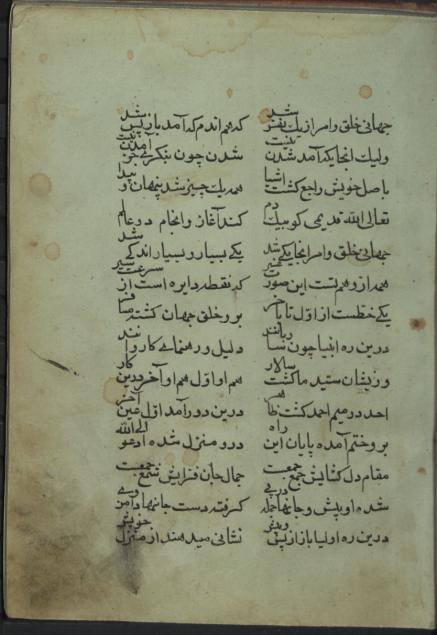 جهانی خلق و امر از یک نفس شد که هم اندم که آمد باز پس شد
ولیک انجایکه آمد شدن نیست شدن چون بنکری جز آمدن نیست
باصل خویش راجع کشت اشیا همه یک چیز شد پنهان و پیدا
تعالی الله قدیمی کو بیک دم کند آغاز و انجام دو عالم
جهانی خلق و امر انجا یکی شد یکی بسیار و بسیار اندکی شد
همه از وهم تست این صورت غیر که نقطه دایره است از سرعت سیر
یکی خطست از اول تا باخر برو خلق جهان کشته مسافر
درین ره انبیا چون ساربانند دلیل و رهنمای کاروانند
وزیشان سید ما کشت سالار هم او اول هم او آخر درین کار
احد در میم احمد کشت ظاهر درین دور آمد اول عین آخر
برو ختم آمده پایان این راه درو منزل شده ادعو الی الله
مقام دلکشایش جمع جمعست جمال جان فزایش شمع جمعست
شده او پیش و جانها جمله در پی کرفته دست جانها دامن وی
درین ره اولیا باز از پس و پیش نشانی میدهند از منزل خویش